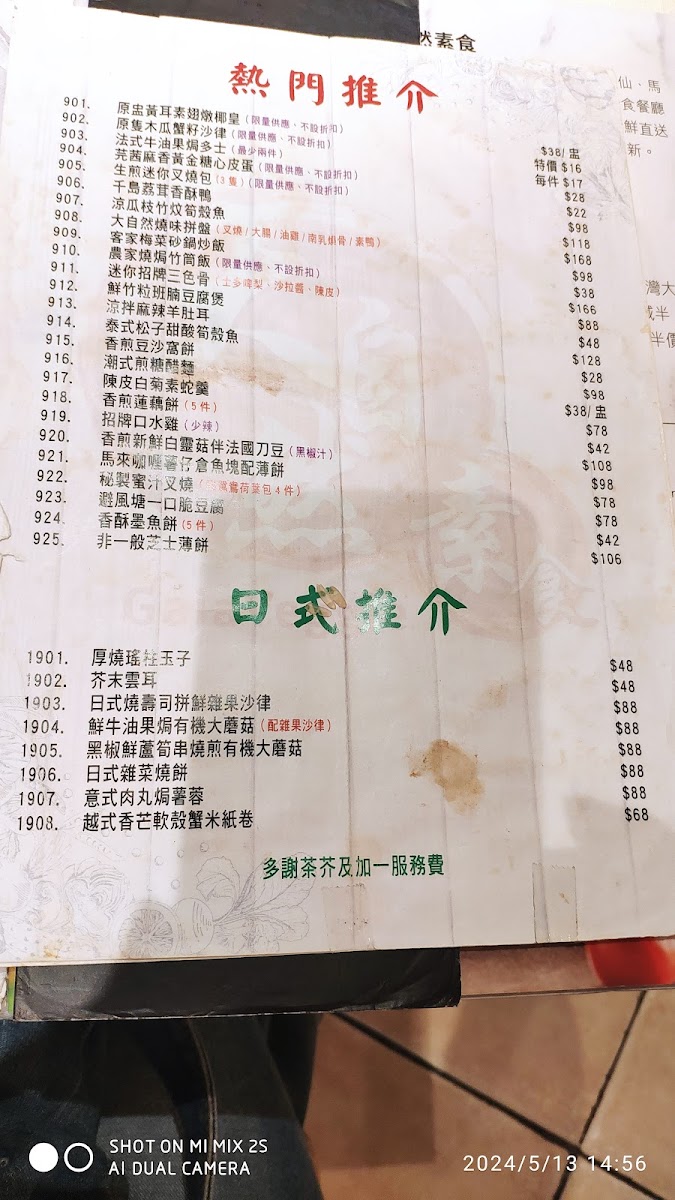 然素食
仙．馬
食餐廳
鮮直送
新。
熱門推介
901. 原盅黃耳素翅燉椰皇(限量供應、不設折扣) $38/盅
902. 原隻木瓜蟹籽沙律(限量供應、不設折扣) 特價 $16
903. 法式牛油果焗多士(最少兩件) 每件 $17
904. 芫茜麻香黃金糖心皮蛋(限量供應、不設折扣) $28
905. 生煎迷你叉燒包(3隻)(限量供應、不設折扣) $22
906. 千島荔茸香酥鴨 $98
907. 涼瓜枝竹炆筍殼魚 $118
908. 大自然燒味拼盤(叉燒/大腸/油雞/南乳焗骨/素鴨) $168
909. 客家梅菜砂鍋炒飯 $98
910. 農家燒焗竹筒飯(限量供應、不設折扣) $38
911. 迷你招牌三色骨(士多啤梨、沙拉醬、陳皮) $166
912. 鮮竹粒班腩豆腐煲 $88
913. 涼拌麻辣羊肚耳 $48
914. 泰式松子甜酸筍殼魚 $128
915. 香煎豆沙窩餅 $28
916. 潮式煎糖醋麵 $98
917. 陳皮白菊素蛇羹 $38/盅
918. 香煎蓮藕餅(5件) $78
919. 招牌口水雞(少辣) $42
920. 香煎新鮮白靈菇伴法國刀豆(黑椒汁) $108
921. 馬來咖喱薯仔倉魚塊配薄餅 $98
922. 秘製蜜汁叉燒 鴛鴦荷葉包4件) $78
923. 避風塘一口脆豆腐 $78
924. 香酥墨魚餅(5件) $42
925. 非一般芝士薄餅 $106
日式推介
1901. 厚燒瑤柱玉子 $48
1902. 芥末雲耳 $48
1903. 日式燒壽司拼鮮雜果沙律 $88
1904. 鮮牛油果焗有機大蘑菇(配雜果沙律) $88
1905. 黑椒鮮蘆筍串燒煎有機大蘑菇 $88
1906. 日式雜菜燒餅 $88
1907. 意式肉丸焗薯蓉 $88
1908. 越式香芒軟殼蟹米紙卷 $68
多謝茶芥及加一服務費
SHOT ON MI MIX 2S
AI DUAL CAMERA
2024/5/13 14:56